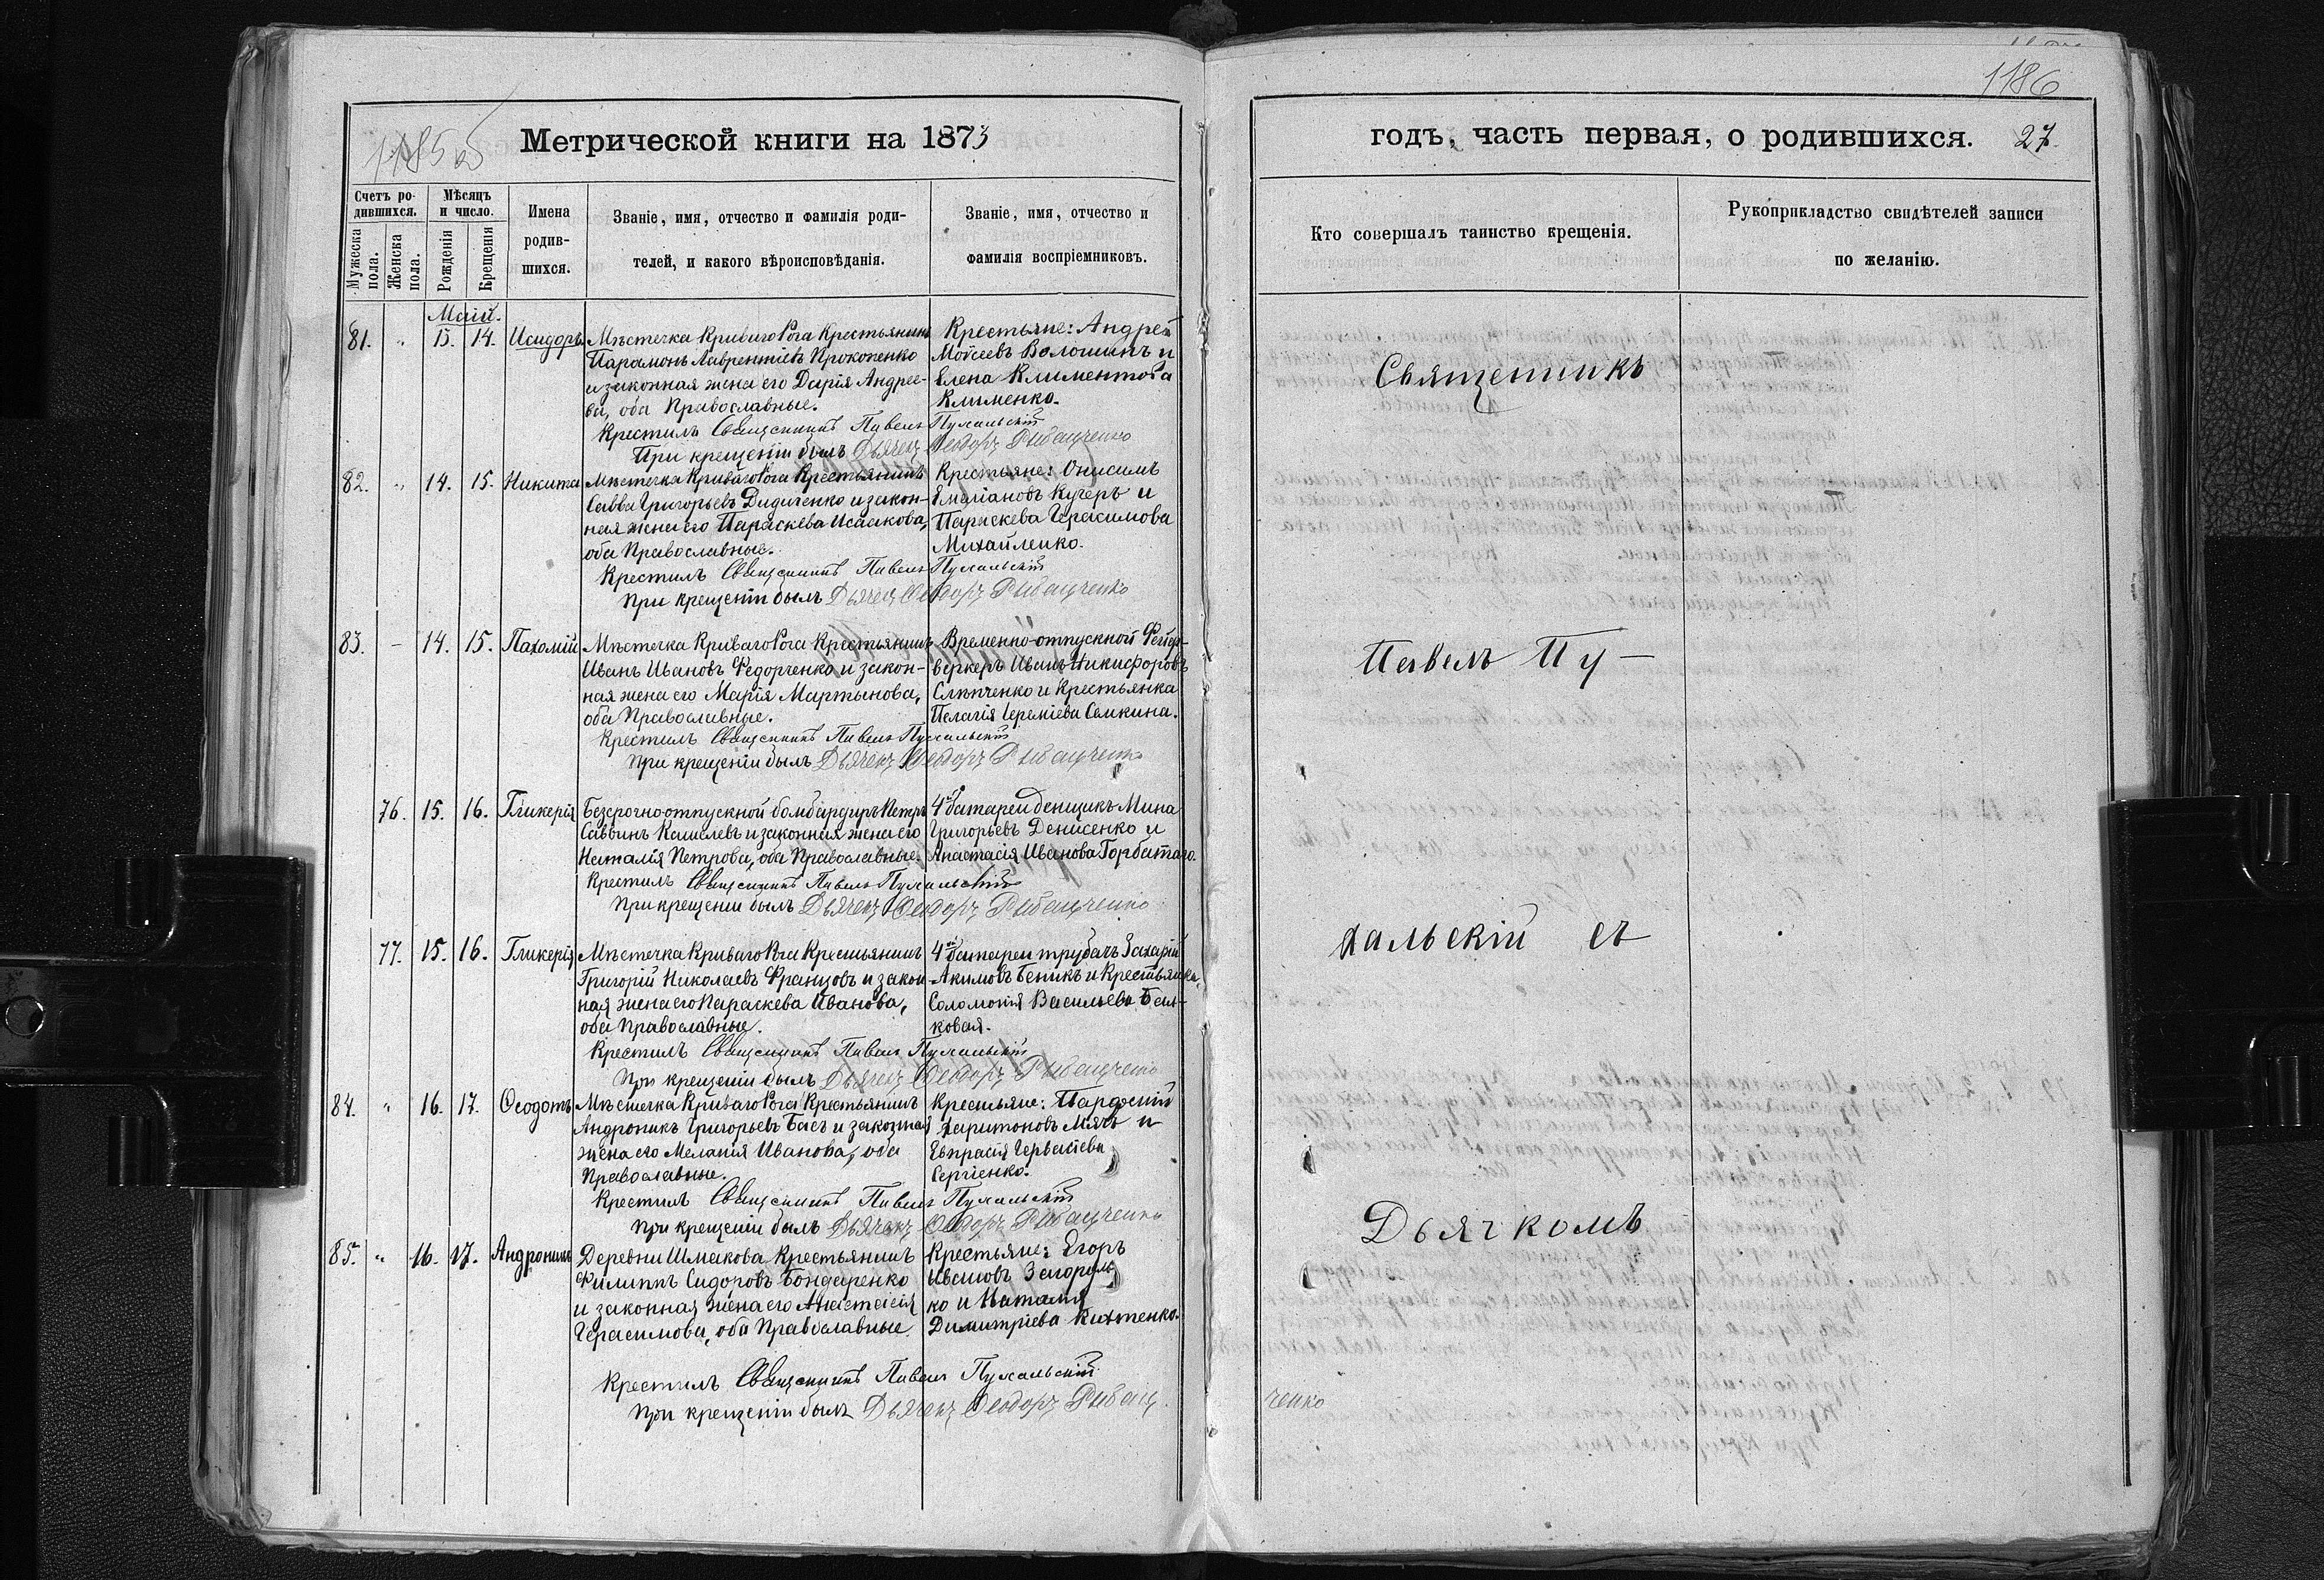 1186
1185 об
Метрической книги на 1873
годъ, часть первая, о родившихся. 27.
Счетъ ро-
дившихся.
Мѣсяцъ
и число.
Имена
родив-
шихся.
Званіе, имя, отчество и фамилія роди-
телей, и какого вѣроисповѣданія.
Званіе, имя, отчество и
фамилія воспріемниковъ.
Мужеска
пола.
Женска
пола.
Рожденія
Крещенія
Кто совершалъ таинство крещенія.
Рукоприкладство свидѣтелей записи
по желанію.
Май.
81. " 13. 14. Исидоръ
Мѣстечка Криваго Рога Крестьянинъ
Парамонъ Лаврентіевъ Прокопенко
и законная жена его Дарія Андрее-
ва, оба Православные.
Крестьяне: Андрей
Моѵсеевъ Волошинъ и
Елена Климентова
Клименко.
Крестилъ Священникъ Павелъ Пухальскій
При крещеніи былъ Дьячекъ Ѳеодоръ Рыбальченко
82. " 14. 15. Никита
Мѣстечка Криваго Рога Крестьянинъ
Савва Григорьевъ Диденко и закон-
ная жена его Параскева Исаакова,
оба Православные.
Крестьяне: Онисимъ
Емаліановъ Кучеръ и
Параскева Герасимова
Михайленко.
Крестилъ Священникъ Павелъ Пухальскій
При крещеніи былъ Дьячекъ Ѳеодоръ Рыбальченко
83. – 14. 15. Пахомій
Мѣстечка Криваго Рога Крестьянинъ
Иванъ Ивановъ Федорченко и закон-
ная жена его Марія Мартынова,
оба Православные.
Временно-отпускной Фейер-
веркеръ Иванъ Никифоровъ
Слѣпченко и Крестьянка
Пелагія Іереміева Семкина.
Крестилъ Священникъ Павелъ Пухальскій
При крещеніи былъ Дьячекъ Ѳеодоръ Рыбальченко
76. 15. 16. Гликерія
Безсрочноотпускной бомбардиръ Петръ
Саввинъ Кашелевъ и законная жена его
Наталія Петрова, оба Православные.
4й батареи денщикъ Мина
Григорьевъ Денисенко и
Анастасія Иванова Горбатаго.
Крестилъ Священникъ Павелъ Пухальскій
При крещеніи былъ Дьячекъ Ѳеодоръ Рыбальченко
77. 15. 16. Гликерія
Мѣстечка Криваго Рога Крестьянинъ
Григорій Николаевъ Францовъ и закон-
ная жена его Параскева Иванова,
оба Православные.
4й батареи трубачъ Захарій
Акимовъ Беникъ и Крестьянка
Соломонія Васильева Бел-
ковая.
Крестилъ Священникъ Павелъ Пухальскій
При крещеніи былъ Дьячекъ Ѳеодоръ Рыбальченко
84. " 16. 17. Ѳеодотъ
Мѣстечка Криваго Рога Крестьянинъ
Андроникъ Григорьевъ Баєъ и законная
жена его Меланія Иванова, оба
Православные.
Крестьяне: Парфеній
Харитоновъ Мячъ и
Евпраксія Герваسіева
Сергіенко.
Крестилъ Священникъ Павелъ Пухальскій
При крещеніи былъ Дьячекъ Ѳеодоръ Рыбальченко
85. " 16. 17. Андроникъ
Деревни Шмакова Крестьянинъ
Филиппъ Сидоровъ Бондаренко
и законная жена его Анастасія
Герасимова, оба Православные.
Крестьяне: Егоръ
Ивановъ Загороль-
ко и Наталія
Димитріева Кихтенко.
Крестилъ Священникъ Павелъ Пухальскій
При крещеніи былъ Дьячекъ Ѳеодоръ Рыбаль
ченко
Священникъ
Павелъ Пу-
хальскій съ
Дьячкомъ